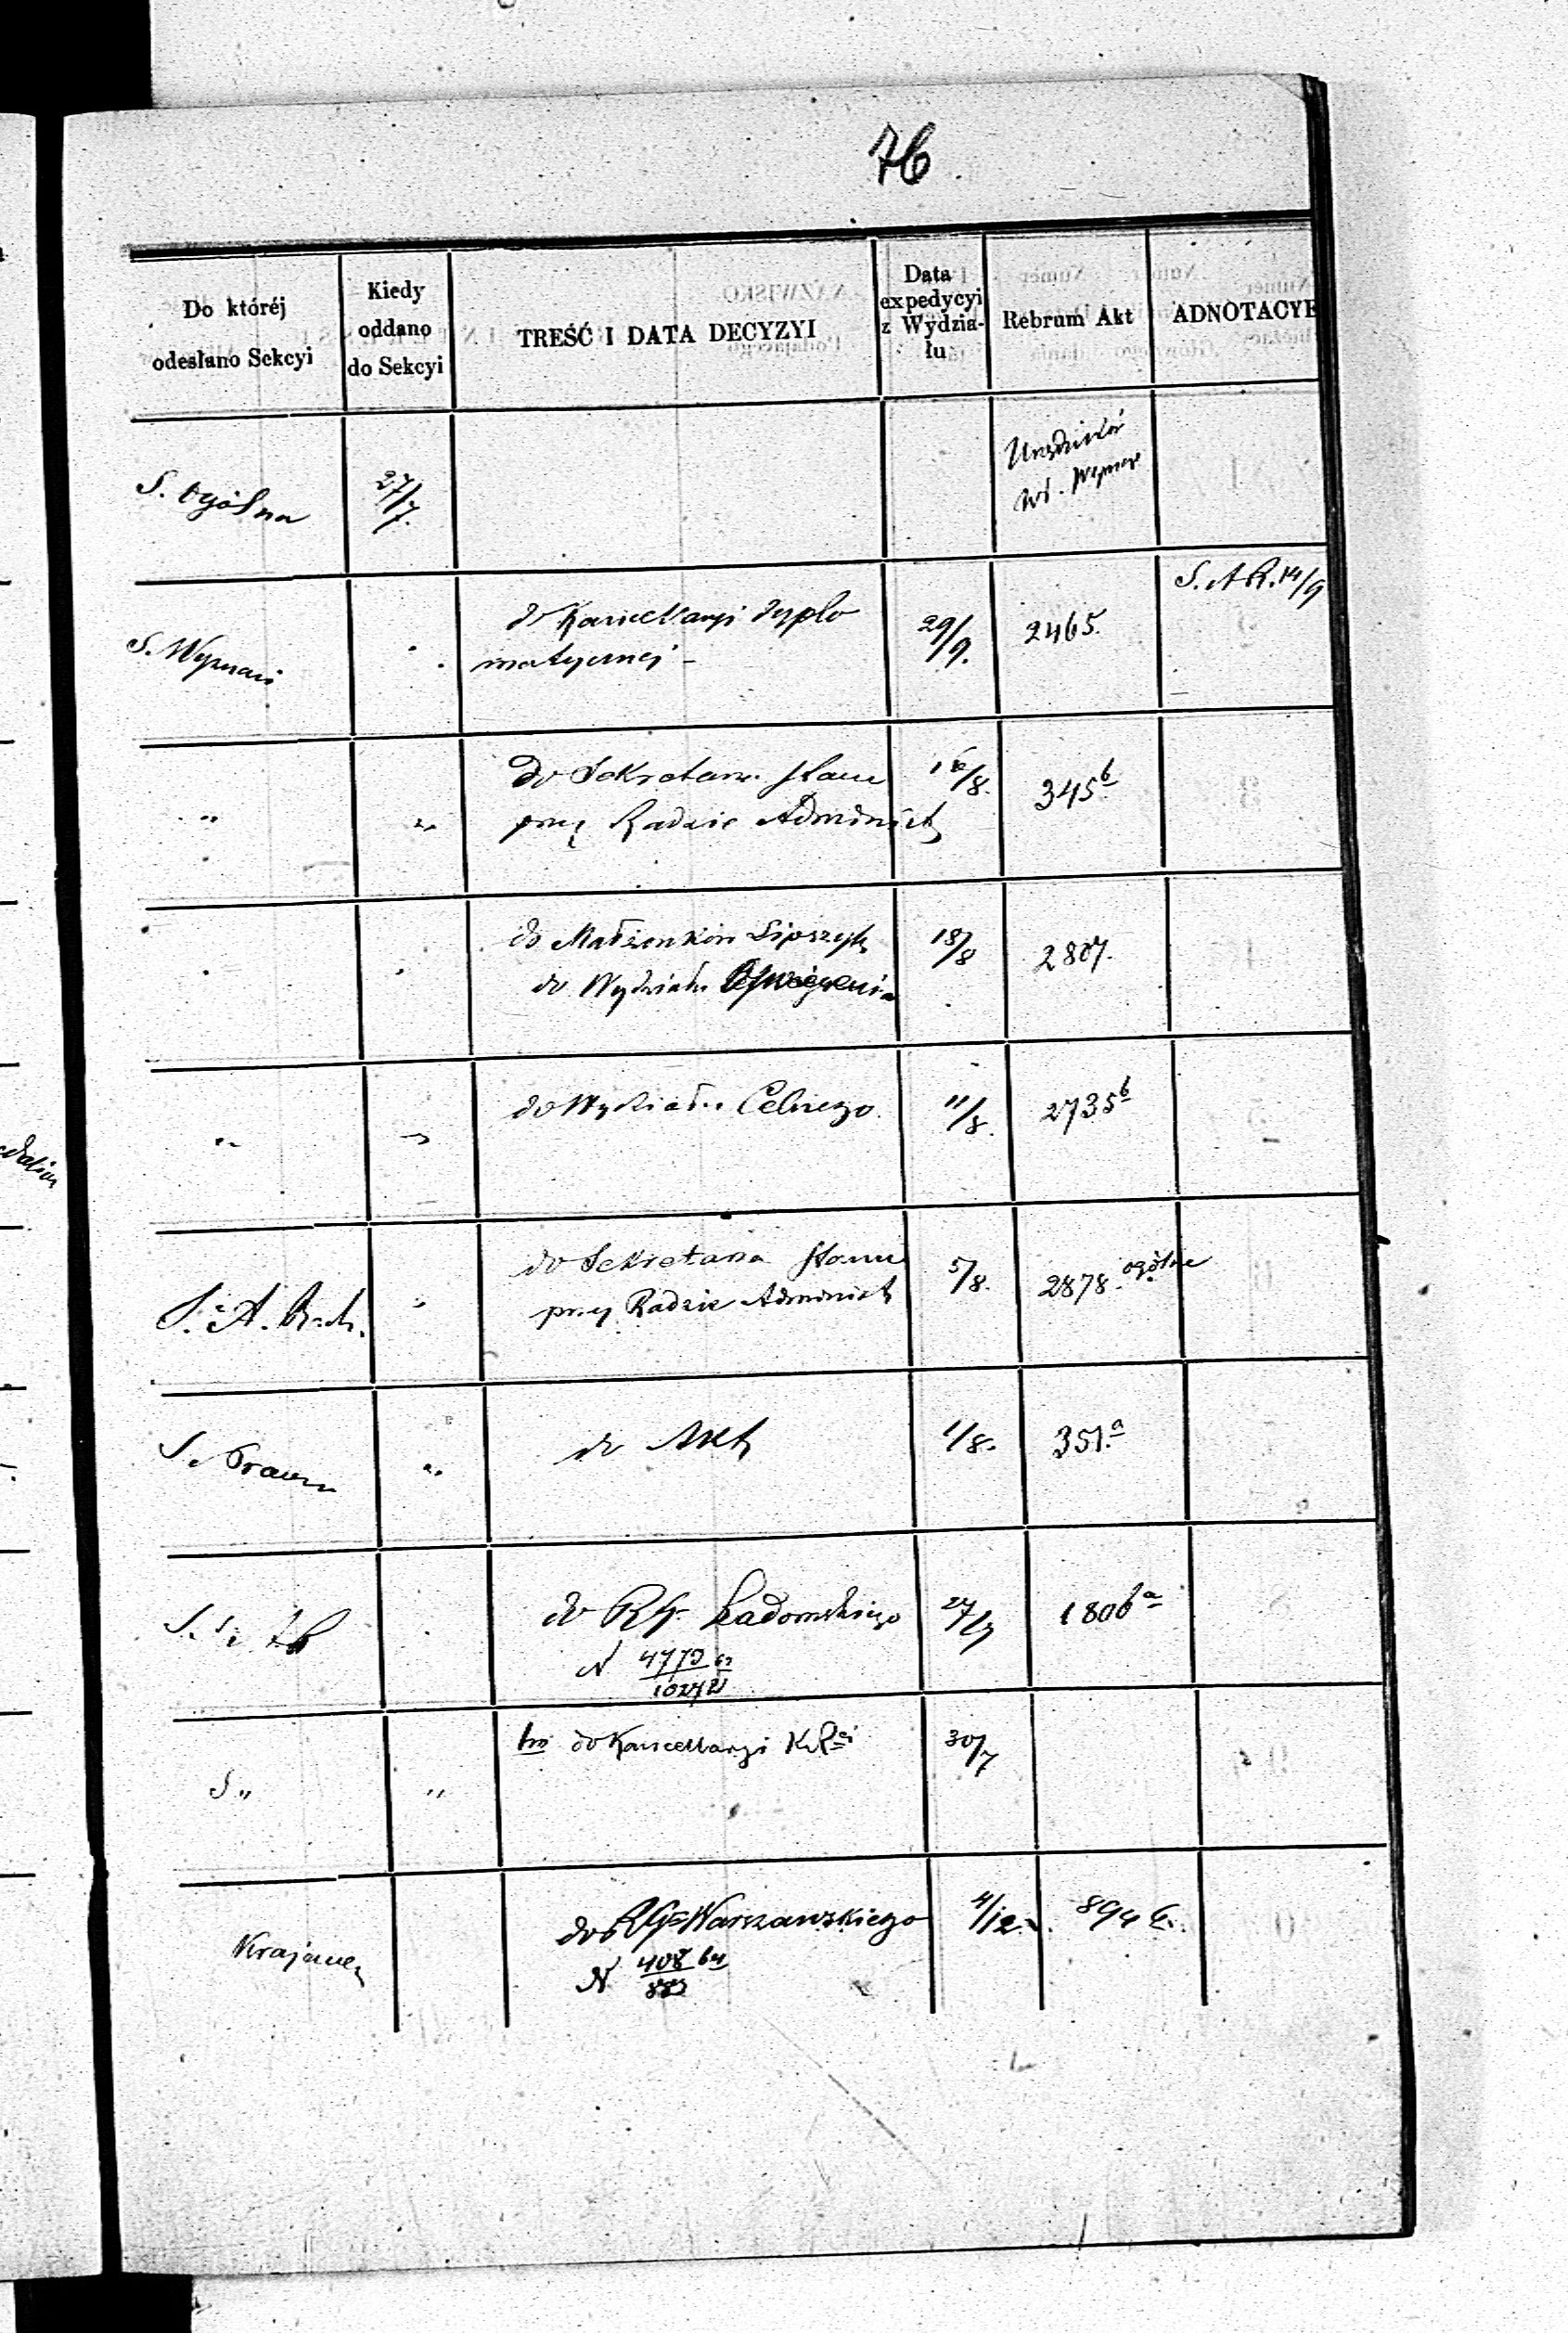 76.
Do któréj odesłano Sekcyi
Kiedy oddano do Sekcyi
TREŚĆ I DATA DECYZYI
Data expedycyi z Wydzia-łu
Rebrum Akt
ADNOTACYE
S. Ogólna 27/7.
S. Wyznań do Kancellaryi dyplo 29/9. 2465. S. A R. 14/9
matycznej -
do Sekretarza Stanu 16/8. 345 b
" " przy Radzie Administ
do Małżonków Lipszyk 18/8 2807.
do Wydziału Oświecenia
" " do Wydziału Celnego. 11/8. 2735 b
do Sekretarza Stanu 5/8. 2878. ogólne
S. A. R. przy Radzie Administ
S. Prawn " do Akt 1/8. 351. a
S. do RG Radomskiego 27/7 1806 a
N
do Kancellaryi 30/7
S " "
do RG Warszawskiego 4/12. 894
Krajowej N 408/883